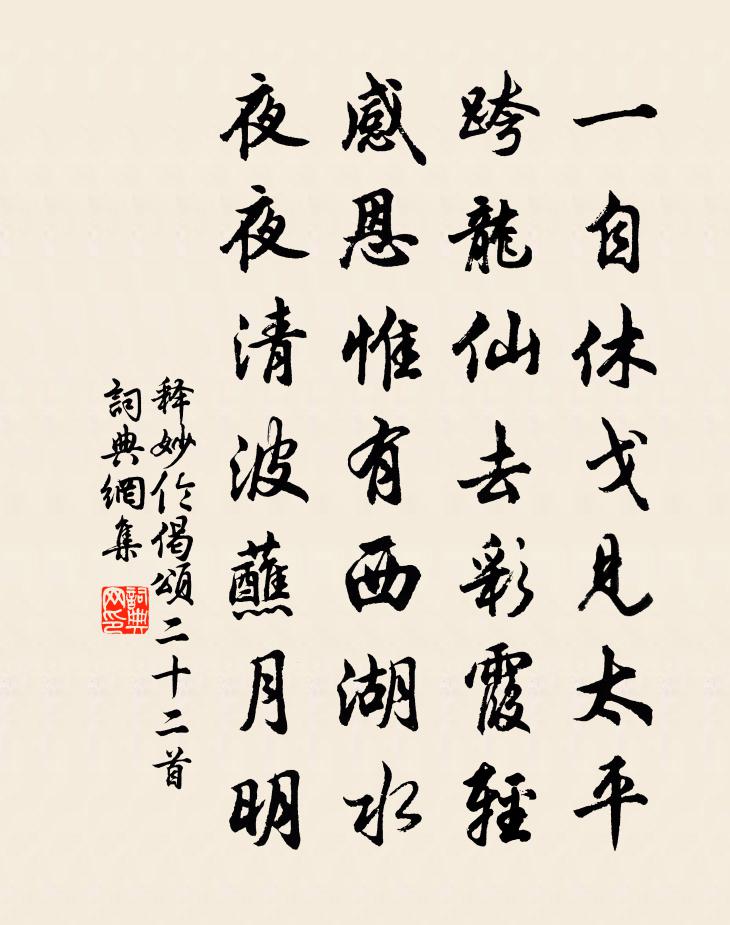 一自休戈見太平
跨龍仙去彩霞輕
感恩惟有西湖水
夜夜清波蘸月明
释妙伦偈颂二十二首
詞典網集
詞典网印